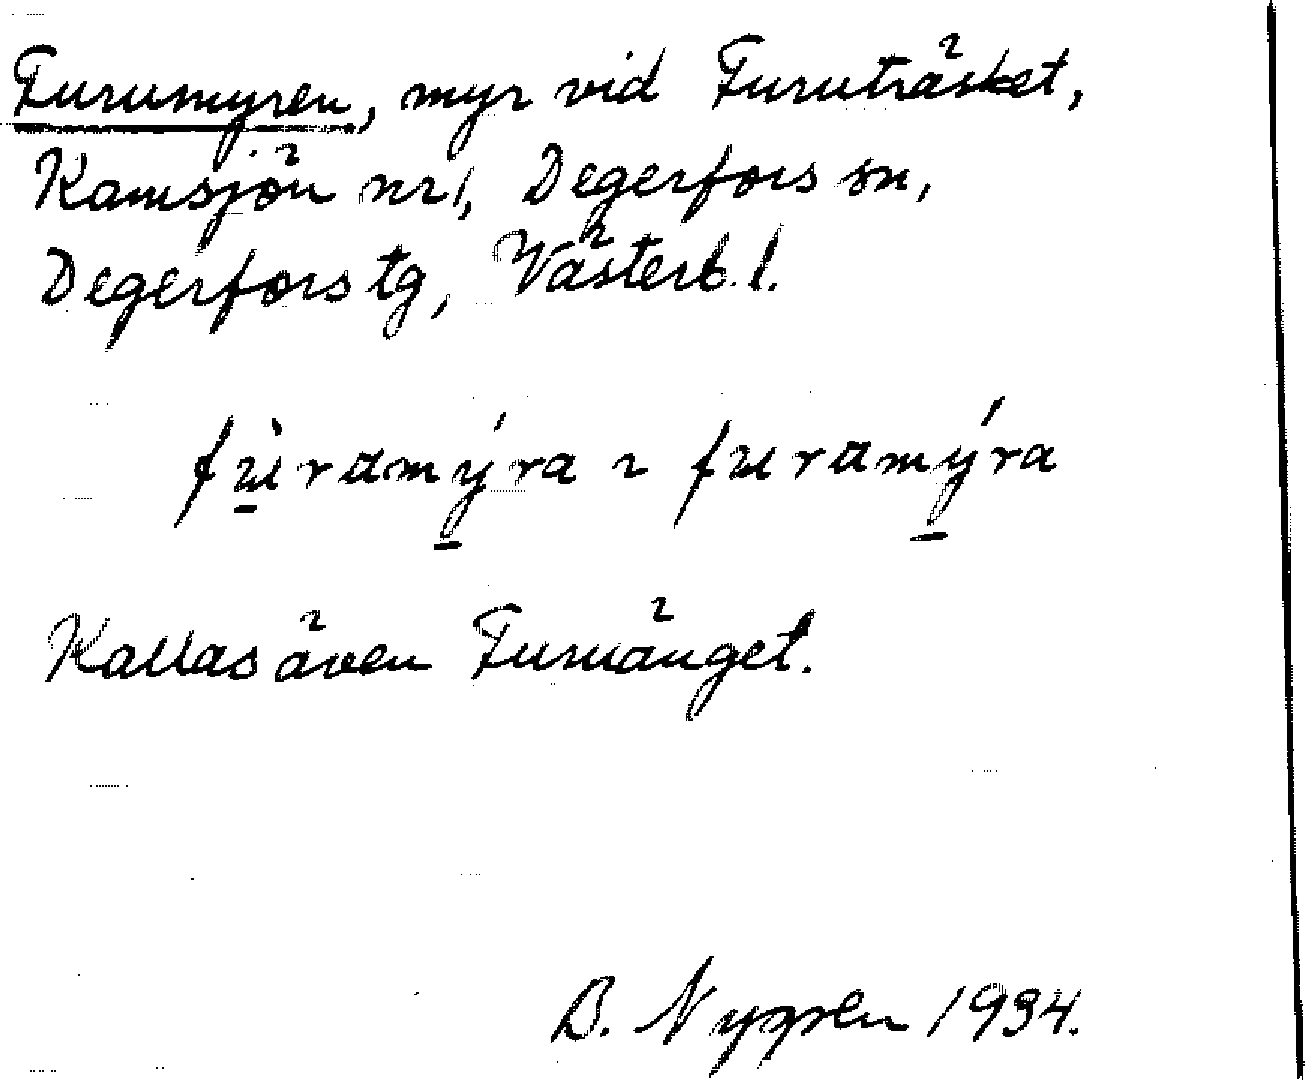 Furumyren, myr vid Furuträsket,
Kamsjön nr 1, Degerfors sn,
Degerfors tg, Västerb. l.
fùramýra ~ furamýra
Kallas även Furuänget.
B. Nygren 1934.